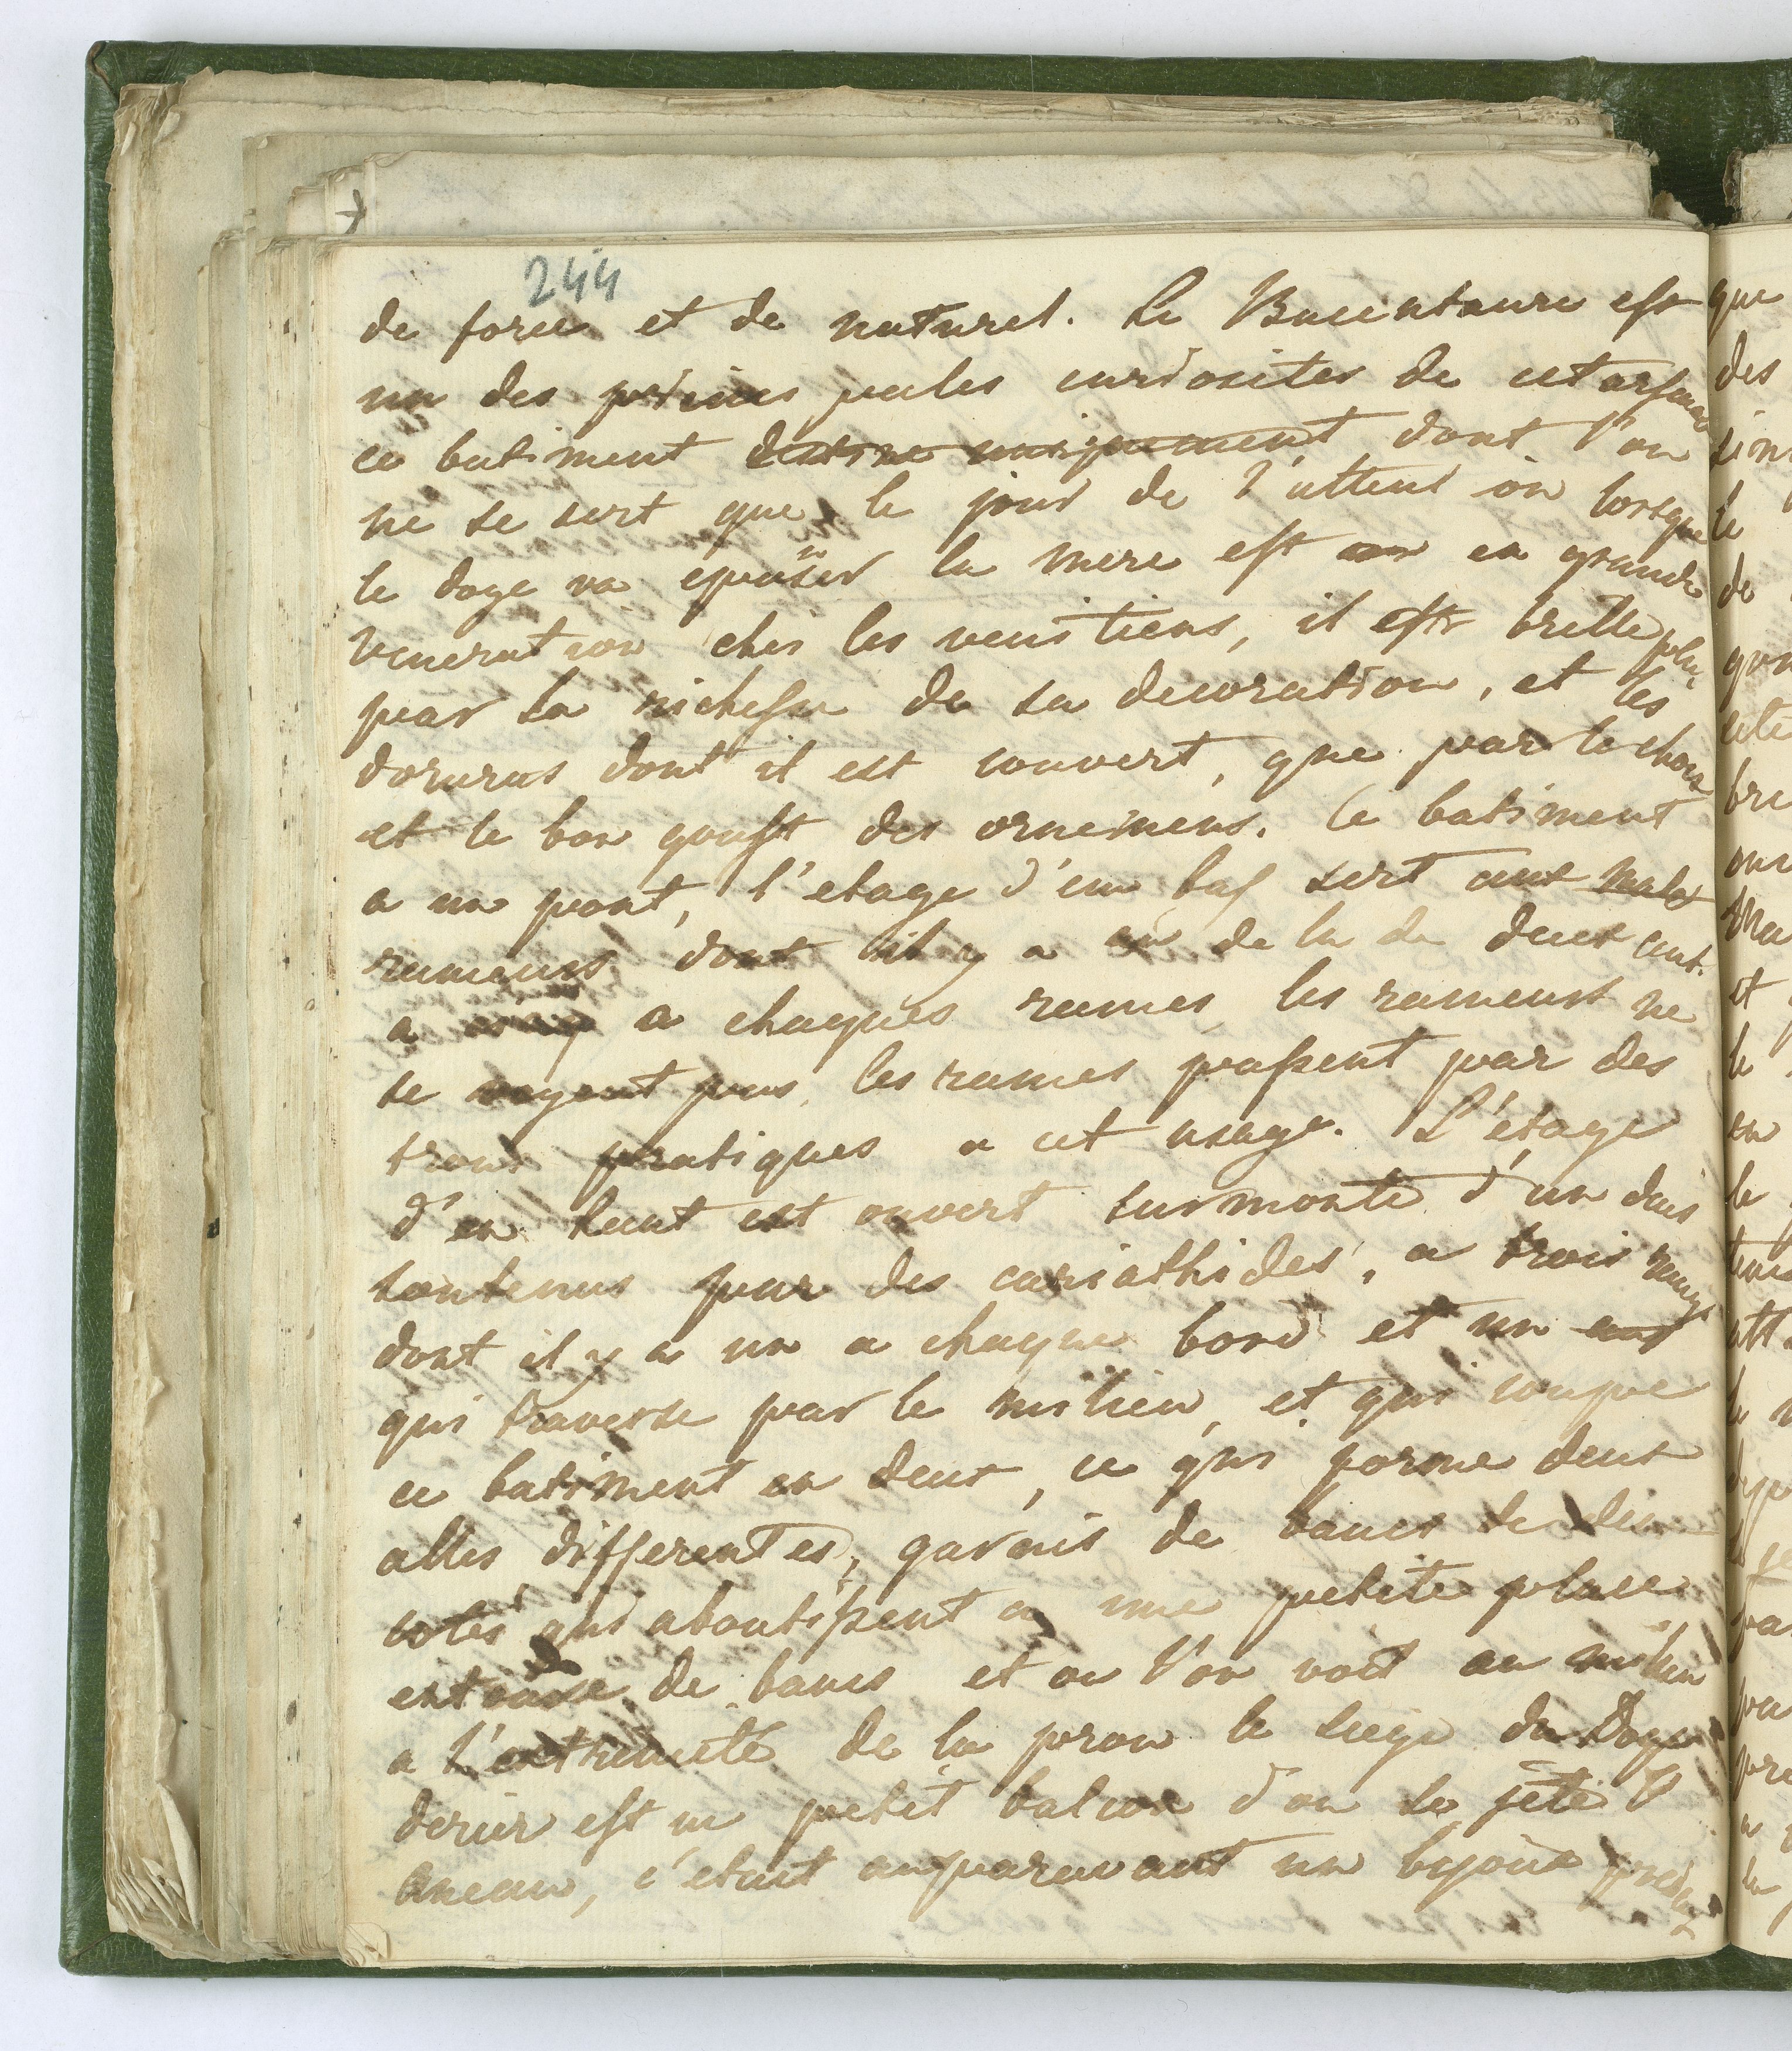 244
de force et de naturel. Le Bucentaure est
un des principales curiosites de cet arsenac
ce batiment destiné uniquement dont l'on
ne se sert que le jour de l'attension lorsque
le doge va epouser la mere est en grande
veneration chés les venitiens, il est brille plus
par la richesse de sa decoration, et les
dorures dont il est couvert, que par le choix
et le bon goust des ornemens. Ce batiment
a un pont, l'etage d'en bas sert aux
rameurs dont il y a de la de deux cent.
a a chaques rames, les rameurs ne
se voyent pas, les rames passent par des
trous pratiques a cet usage. L'étage
d'en haut est ouvert surmonté d'un dais
soutenus par des cariathides, a trois rangs
dont il y a un a chaque bord et un
qui traverse par le milieu, et qui coupe
ce batiment en deux, ce qui forme deux
alles differentes, garnis de bancs de deux
cotés qui aboutissent a une petite place
entouré de bancs et ou l'on voit au milieu
a l'extremité de la prou le siege du Doge
derier est un petit balcon d'ou se jete l'
aneau, c'etait auparavant un bijoux pretieux